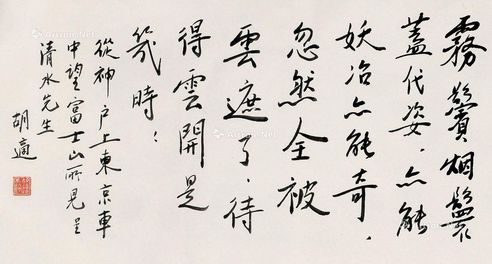 霧鬢烟鬟
蓋代姿，亦能
妖冶亦能奇．
忽然全被
雲遮了，待
得雲開是
幾時：
從神户上東京車
中望富士山所見呈
清水先生
胡適